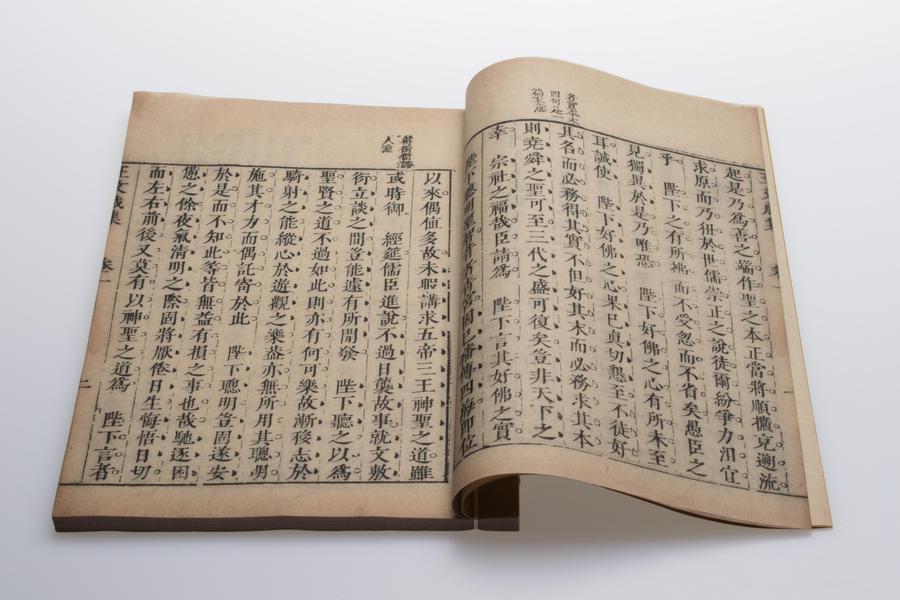 起是乃為善之端作聖之本正當將順擴充遡流
求原而乃狃於世儒崇正之說徒爾紛爭力沮宜
乎　陛下之有所拂而不受忽而不省矣愚臣之
見獨異於是乃唯恐　陛下好佛之心有所未至
耳誠使　陛下好佛之心果已真切懇至不徒好
其名而必務得其實不但好其末而必務求其本
則堯舜之聖可至三代之盛可復矣豈非天下之
幸　宗社之福哉臣請為　陛下言其好佛之實
固已播傳四海即位
以來偶值多故未暇講求五帝三王神聖之道雖
或時御　經筵儒臣進說不過日襲故事就文敷
衍立談之間豈能遽有所開發　陛下聽之以為
聖賢之道不過如此則亦有何可樂故漸移志於
騎射之能縱心於遊觀之樂蓋亦無所用其聰明
施其才力而偶託寄於此　陛下聰明豈固遂安
於是而不知此等皆無益有損之事也哉馳逐困
憊之餘夜氣清明之際固將厭倦日生悔悟日切
而左右前後又莫有以神聖之道為　陛下言者
卷一　二